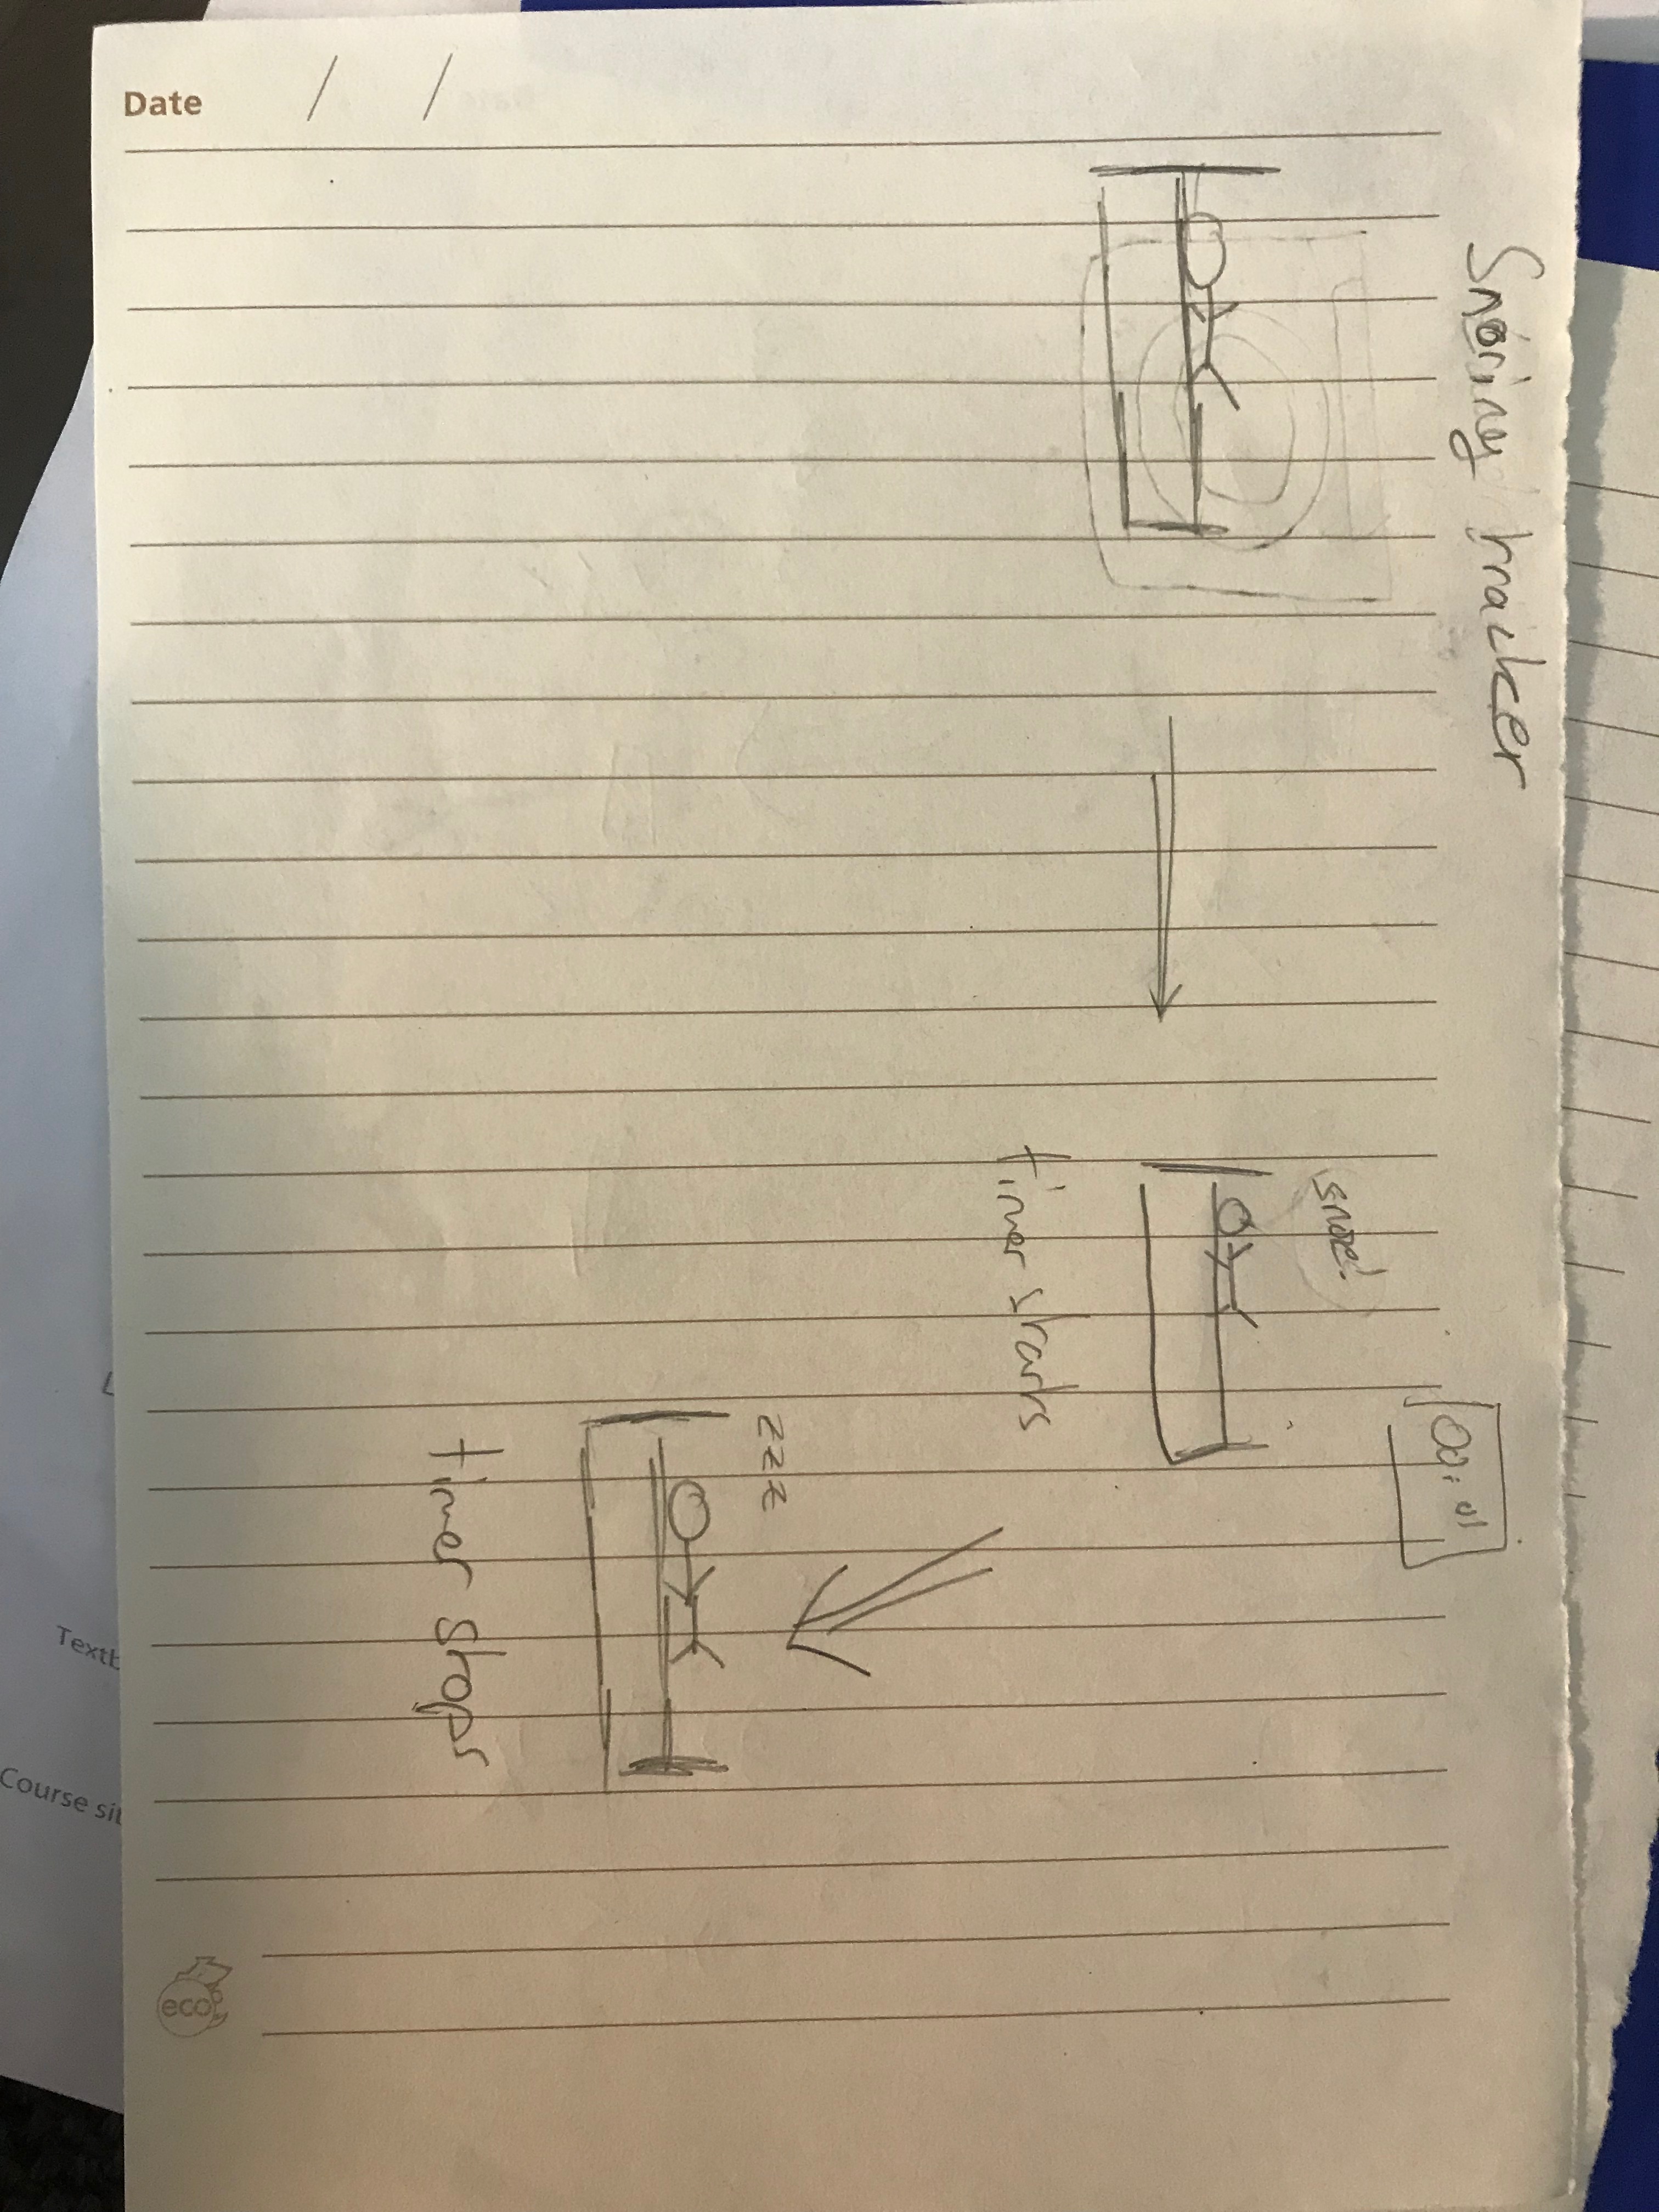 Snoring tracker
snore!
00:01
timer starts
zzz
timer stops
Date / /
eco
Textb
Course sit